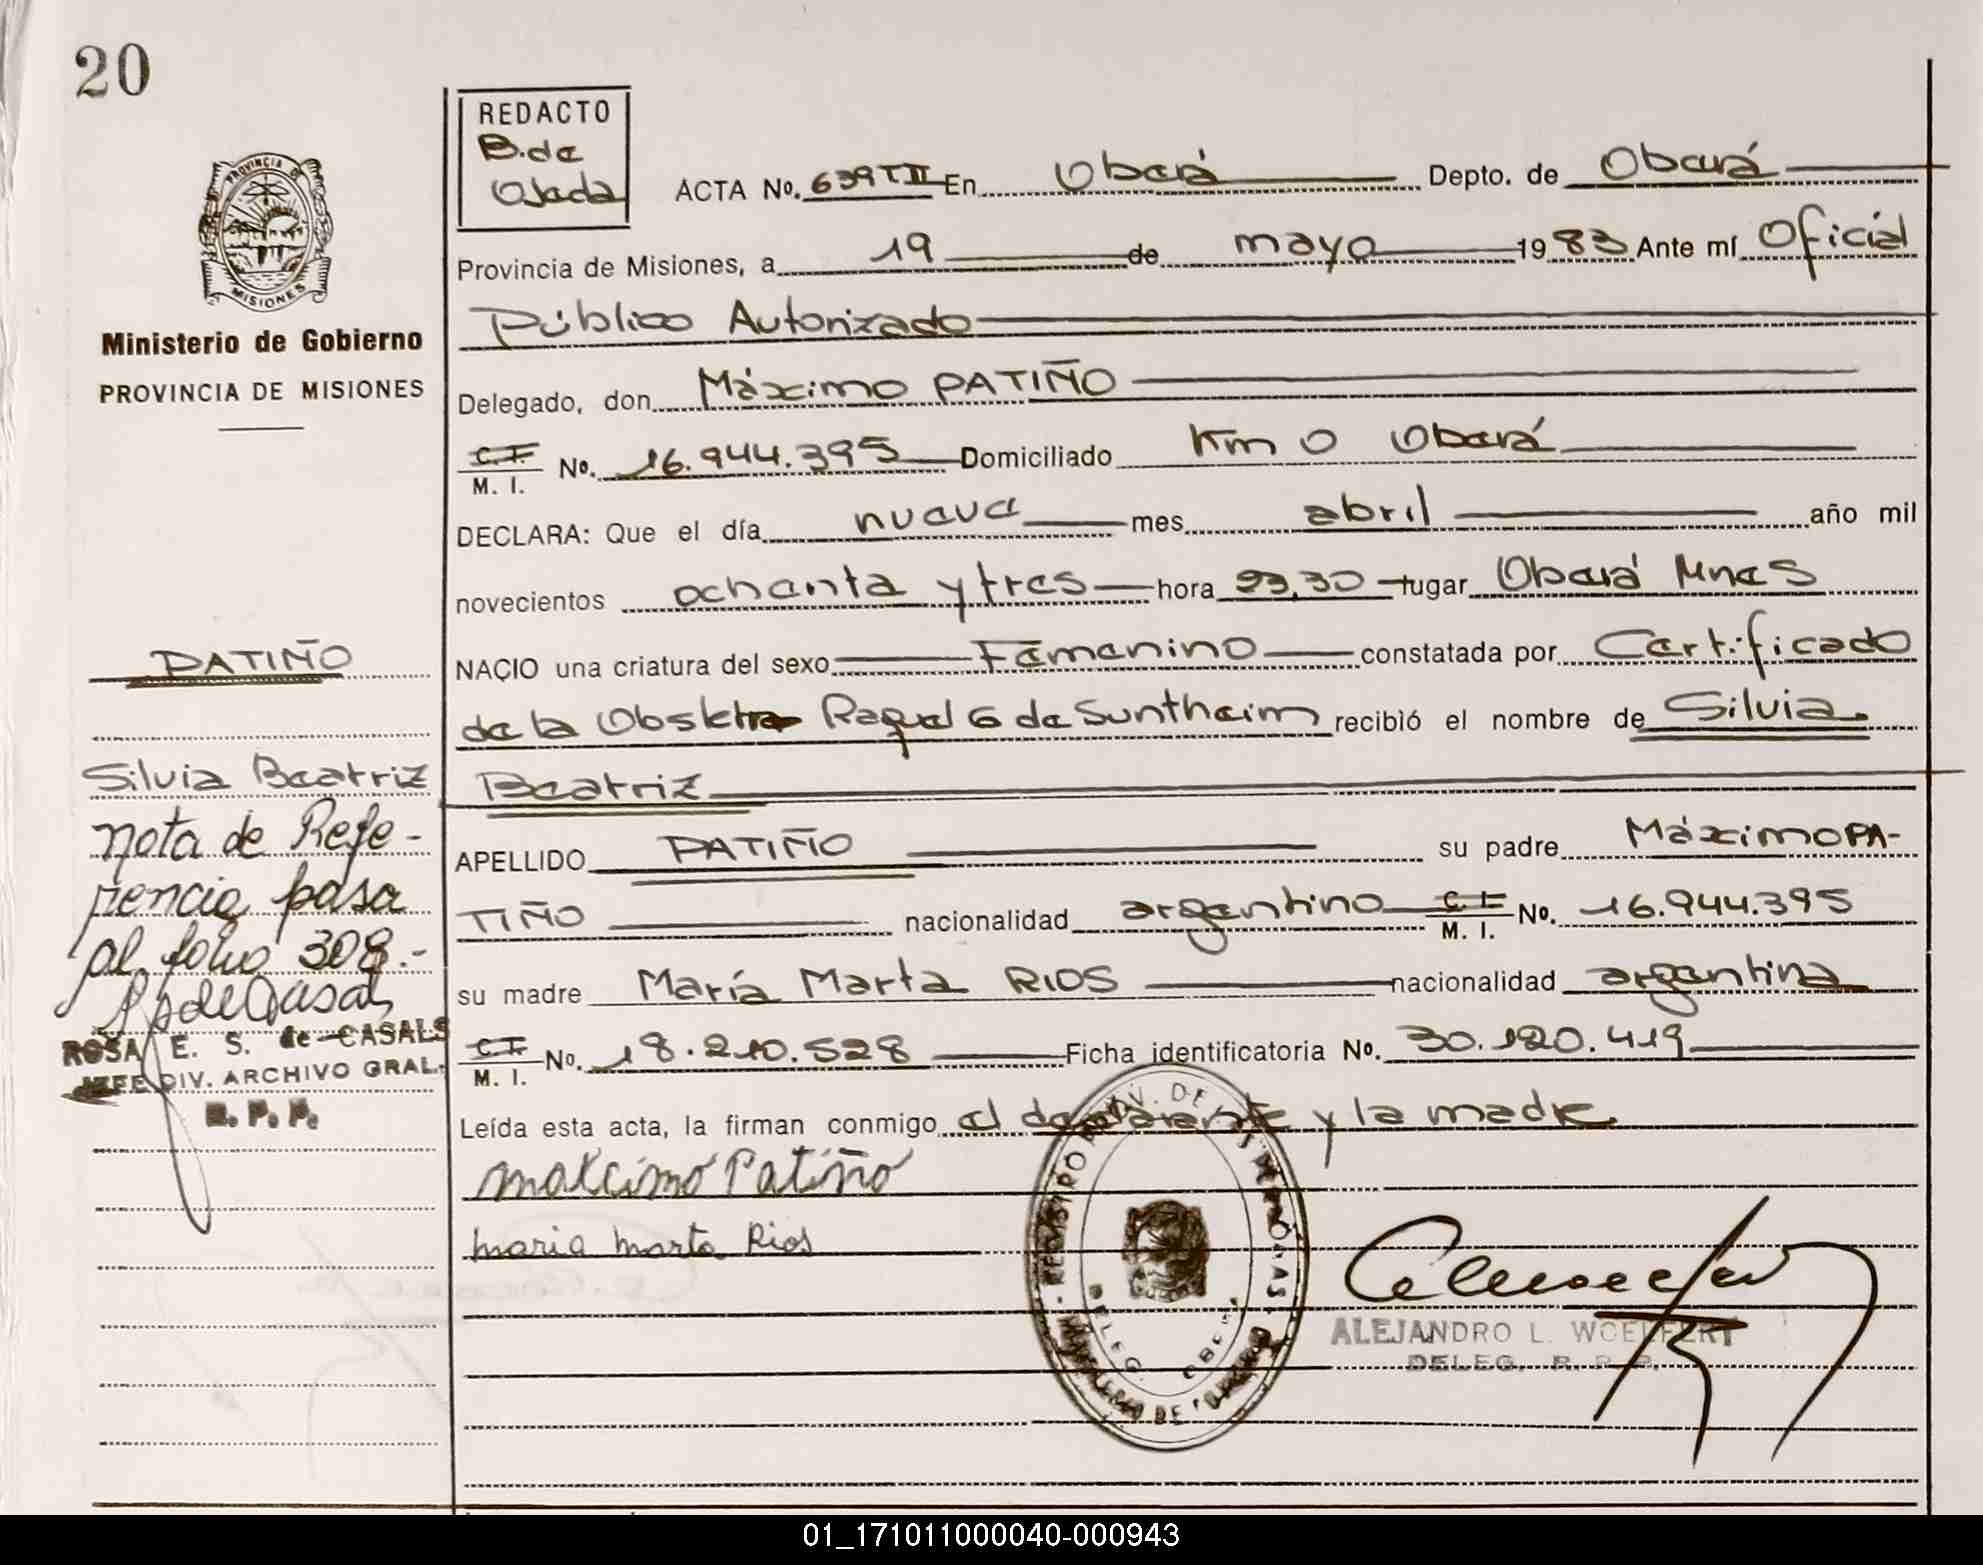 20
REDACTO
B. de
Ojeda
ACTA No. 639 T II En Oberá Depto. de Oberá
Provincia de Misiones, a 19 de mayo 1983 Ante mí Oficial
Público Autorizado
Delegado, don Máximo PATIÑO
C.I. M. I. No. 16.944.395 Domiciliado Km 0 Oberá
DECLARA: Que el día nueve mes abril año mil
novecientos ochenta y tres hora 23,30 lugar Oberá Mnes
NACIO una criatura del sexo Femenino constatada por Certificado
de la Obstetra Raquel G de Suntheim recibió el nombre de Silvia
Beatriz
APELLIDO PATIÑO su padre Máximo PA-
TIÑO nacionalidad argentino C.I. M. I. No. 16.944.395
su madre María Marta RIOS nacionalidad argentina
C.I. M. I. No. 18.210.528 Ficha identificatoria No. 30.120.419
Leída esta acta, la firman conmigo el declarante y la madre
Makcimo Patiño
Maria Marta Rios
ALEJANDRO L. WOELFERT
DELEG. R. P. P.
DELEG. OBERA
PROVINCIA DE
MISIONES
Ministerio de Gobierno
PROVINCIA DE MISIONES
PATIÑO
Silvia Beatriz
nota de Refe-
rencia pasa
al folio 308.-
ROSA E. S. de CASALS
JEFE DIV. ARCHIVO GRAL.
R. P. P.
01_171011000040-000943